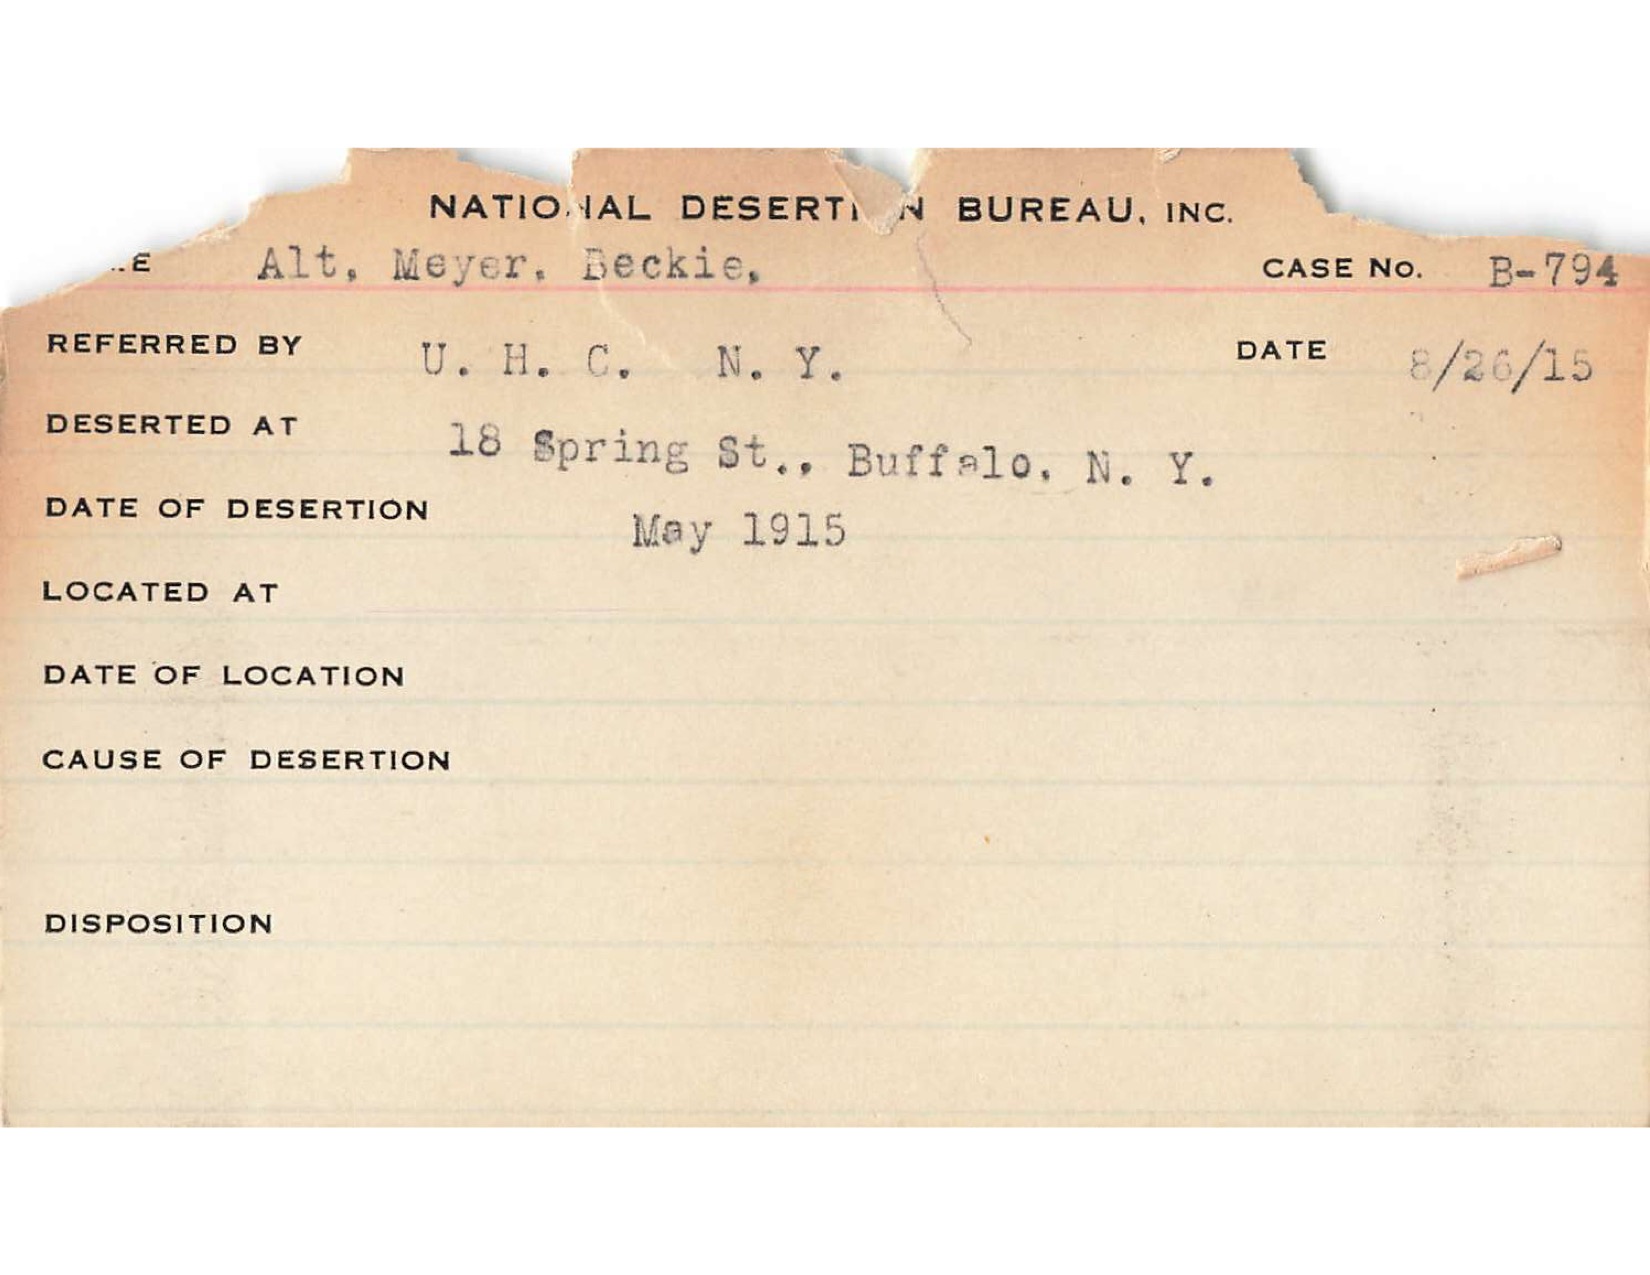 NATIONAL DESERTION BUREAU, INC.
Alt, Meyer, Beckie, CASE No. B-794
REFERRED BY U. H. C. N. Y. DATE 8/26/15
DESERTED AT 18 Spring St., Buffalo, N. Y.
DATE OF DESERTION May 1915
LOCATED AT
DATE OF LOCATION
CAUSE OF DESERTION
DISPOSITION